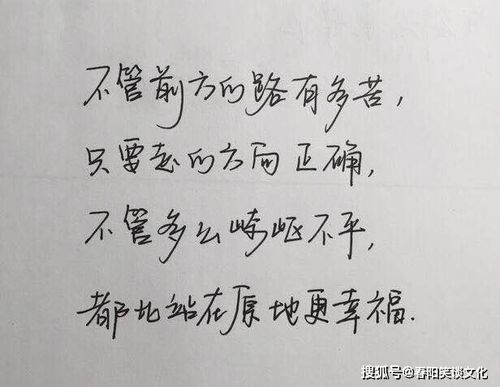 不管前方的路有多苦，
只要走的方向正确，
不管多么崎岖不平，
都比站在原地更幸福.
搜狐号@春阳笑谈文化